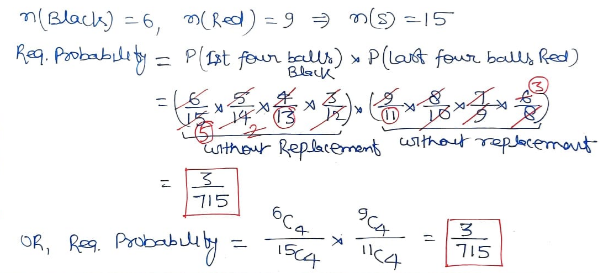 n(Black) = 6, n(Red) = 9 ⇒ n(S) = 15
Req. Probability = P(Ist four balls Black) × P(Last four balls Red)
= (6/15 × 5/14 × 4/13 × 3/12) × (9/11 × 8/10 × 7/9 × 6/8)
5 2 3
without Replacement without replacement
= 3/715
OR, Req. Probability = ⁶C₄/15C₄ × ⁹C₄/11C₄ = 3/715